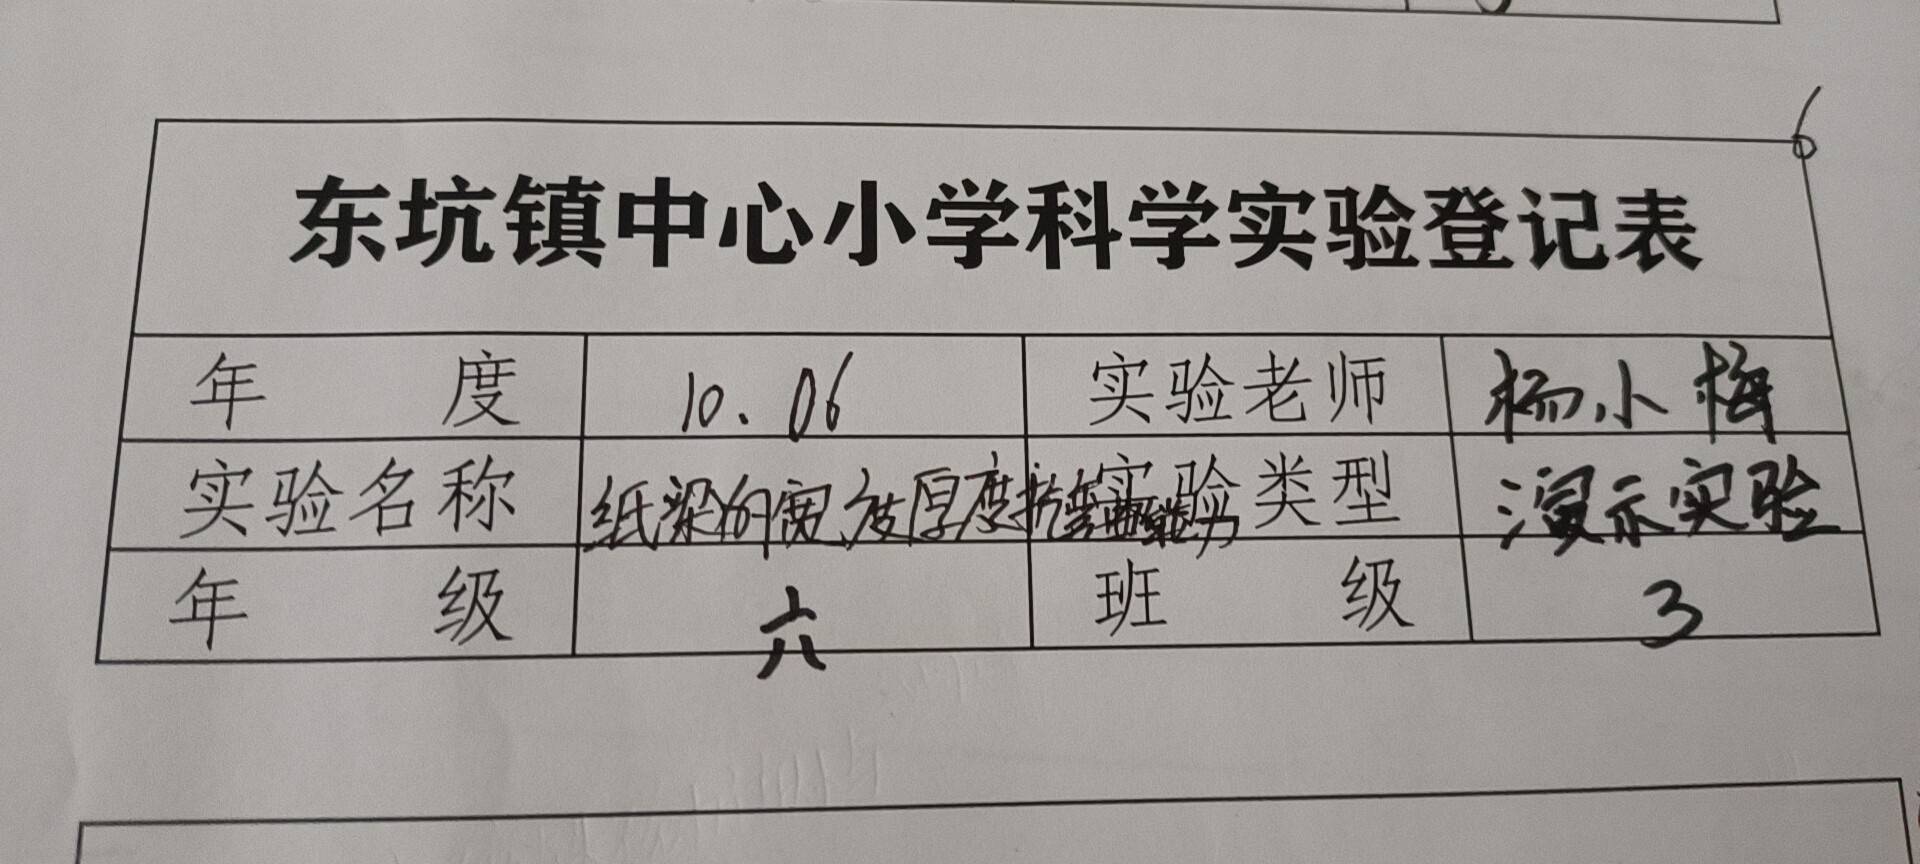 东坑镇中心小学科学实验登记表
年度 10.06 实验老师 杨小梅
实验名称 纸梁的宽度厚度抗弯曲能力 实验类型 演示实验
年级 六 班级 3